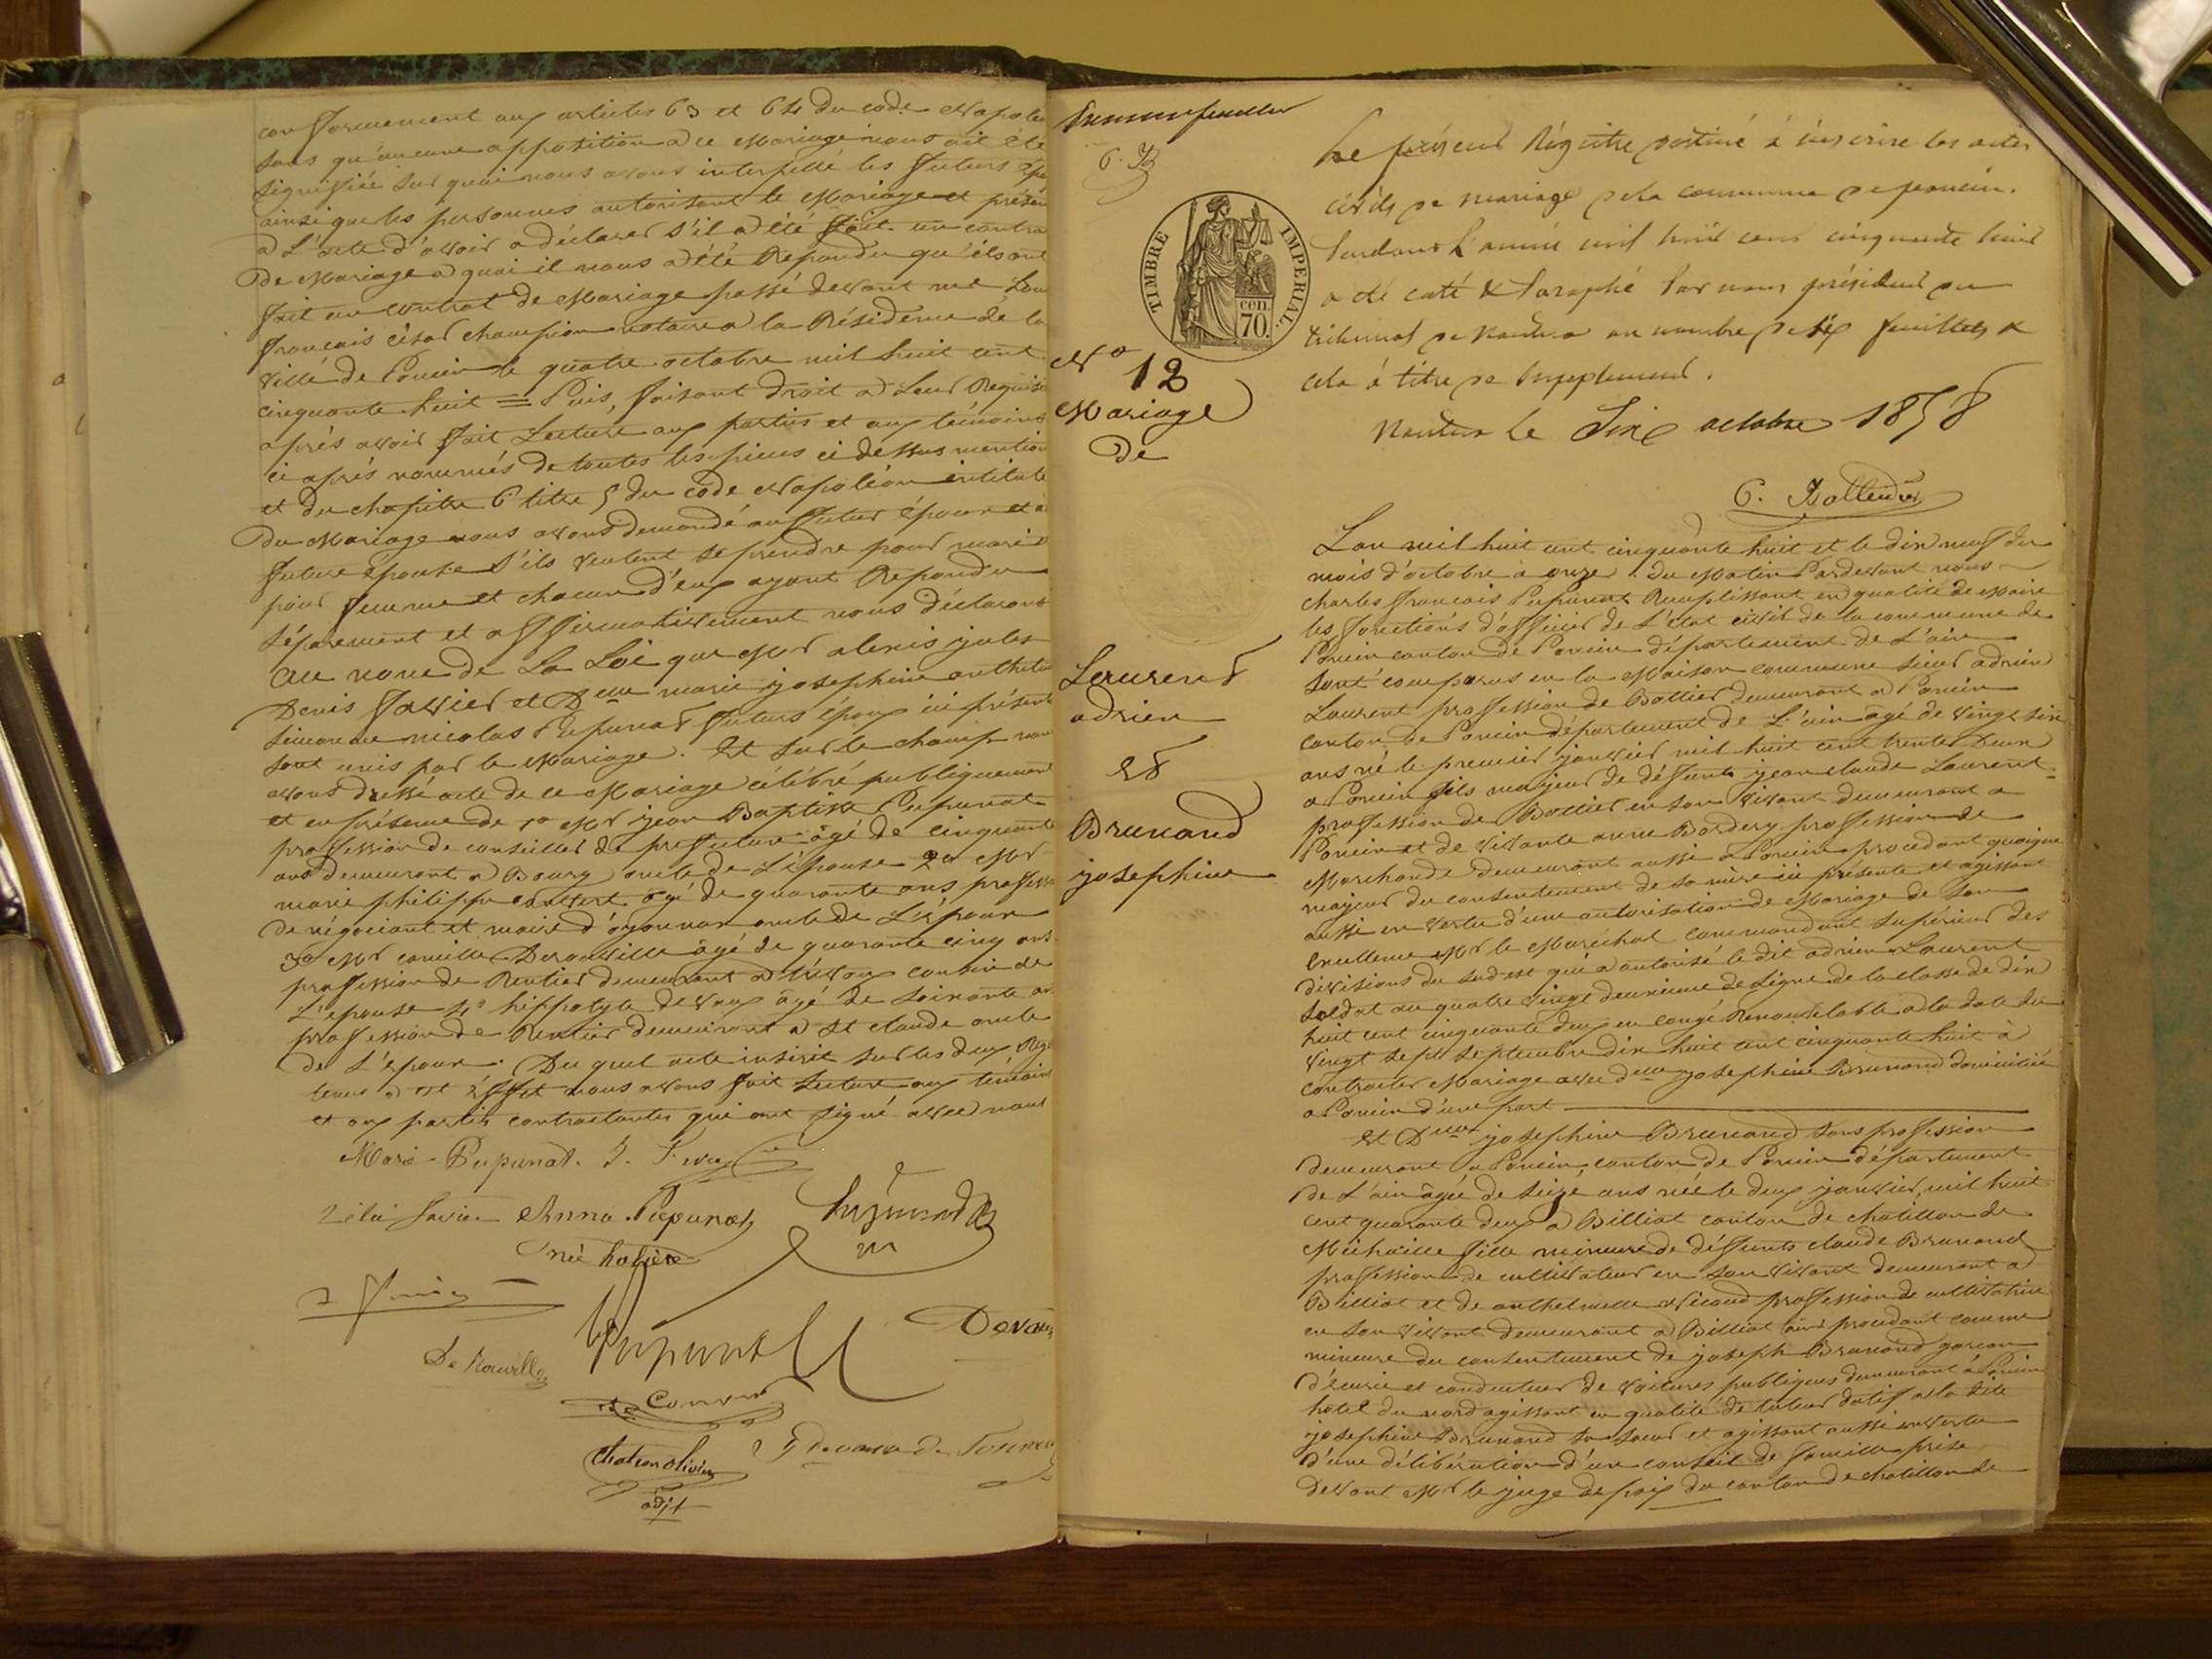 conformement aux articles 63 et 64 du code Napoléo
sans qu'aucune opposition a ce Mariage nous ait été
signifiée sur quoi nous avons interpellé les futurs épo
ainsi que les personnes autorisant le Mariage et présen
a L'acte d'avoir a déclarer s'il a été fait un contra
De Mariage a quoi il nous a été Repondu qu'ils ont
fait un contrat de Mariage passé devant me Loui
françois césar champion notaire a la Résidence de la
ville de Poncin le quatre octobre mil huit cent
cinquante huit = Puis, faisant droit a Leur Requisi
après avoir fait Lecture aux parties et aux témoins
ci après nommés de toutes les pièces ci dessus mention
et du chapitre 6 titre 5 du code Napoléon intitulé
Du Mariage nous avons demandé au futur époux et a
future épouse s'ils veulent se prendre pour mari e
pour femme et chacun d'eux ayant Repondu
séparement et affirmativement nous déclarons
au nom de La Loi que Mr alexis jules
Denis favier et Dlle marie josephine anthelm
simonne nicolas Pupunat futurs époux ici présent
sont unis par le Mariage. Et sur le champ nou
avons dressé acte de ce Mariage célébré publiquement
et en présence de 1o Mr jean Baptiste Pupunat
profession de conseiller de prefecture âgé de cinquante
ans demeurant a Bourg oncle de L'épouse 2o Mr
marie philippe convert âgé de quarante ans professi
de négociant et maire d'oyonnax oncle de L'époux
3o Mr camille Derouville âgé de quarante cinq ans
profession de Rentier demeurant a trévoux cousin de
L'épouse 4o hippolyte devaux âgé de soixante an
profession de Rentier demeurant a St claude oncle
de L'époux. Du quel acte inscrit sur les deux Régi
tenus a cet éffet nous avons fait Lecture aux témoins
et aux parties contractantes qui ont signé avec nous
Marie Pupunat. J.
Anna Pupunat
née
Devaux
De Rouville
Pupunat
Convert
Chatron Olivier
adjt
6. B
TIMBRE IMPERIAL.
cen.
70.
No
12
Mariage
de
Laurent
adrien
et
Brunand
josephine
Le présent Régistre destiné à inscrire les actes
civils de mariage de la commune de poncin.
Pendant L'année mil huit cent cinquante huit
a été coté & Paraphé Par nous président du
tribunal de Nantua au nombre de six feuillets &
cela à titre de Supplément.
Nantua Le Six octobre 1858
Lan mil huit cent cinquante huit et le dix neuf du
mois d'octobre a onze h. du Matin Pardevant nous
charles françois Pupunat Remplissant en qualité de Maire
les fonctions d'officier de L'état civil de la commune de
Poncin canton de Poncin département de L'ain
sont comparus en la Maison commune sieur adrien
Laurent profession de Bottier demeurant a Poncin
canton de Poncin département de L'ain âgé de vingt six
ans né le premier janvier mil huit cent trente Deux
a Poncin fils majeur de défunt jean claude Laurent
profession de Bottier en son vivant demeurant a
Poncin et de vivante anne Bordery profession de
Marchande demeurant aussi a Poncin procedant quoique
majeur du consentement de sa mère ici présente et agissant
aussi en vertu d'une autorisation de Mariage de son
excellence Mr le Maréchal commandant superieur des
divisions du sud est qui a autorisé le dit adrien Laurent
soldat au quatre vingt deuxieme de Ligne de la classe de dix
huit cent cinquante deux en congé Renouvelable a la date du
vingt sept septembre dix huit cent cinquante huit à
contracter Mariage avec dlle josephine Brunand domiciliée
a Poncin d'une part
Et Dlle josephine Brunand sans profession
demeurant a Poncin canton de Poncin département
de L'ain âgée de seize ans née le deux janvier mil huit
cent quarante deux a Billiat canton de chatillon de
Michaille fille mineure de déffunts claude Brunand
profession de cultivateur en son vivant demeurant a
Billiat et de anthelmette Nicoud profession de cultivatrice
en son vivant demeurant a Billiat ain procedant comme
mineure du consentement de joseph Brunand garçon
d'écurie et conducteur de voitures publiques demeurant à Poncin
hotel du nord agissant en qualité de tuteur datif a la dite
josephine Brunand sa soeur et agissant aussi en vertu
d'une délibération d'un conseil de famille prise
devant Mr le juge de paix du canton de chatillon de